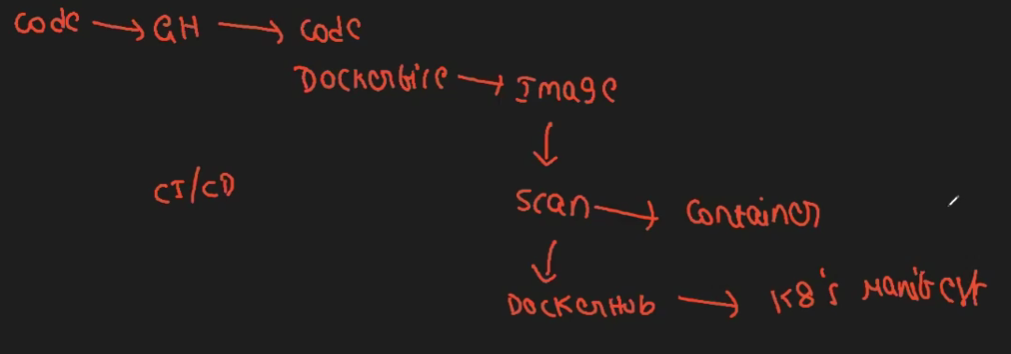 code → GH → code
Dockerfile → Image
↓
CI/CD
scan → container
↓
DockerHub → K8's Manifest